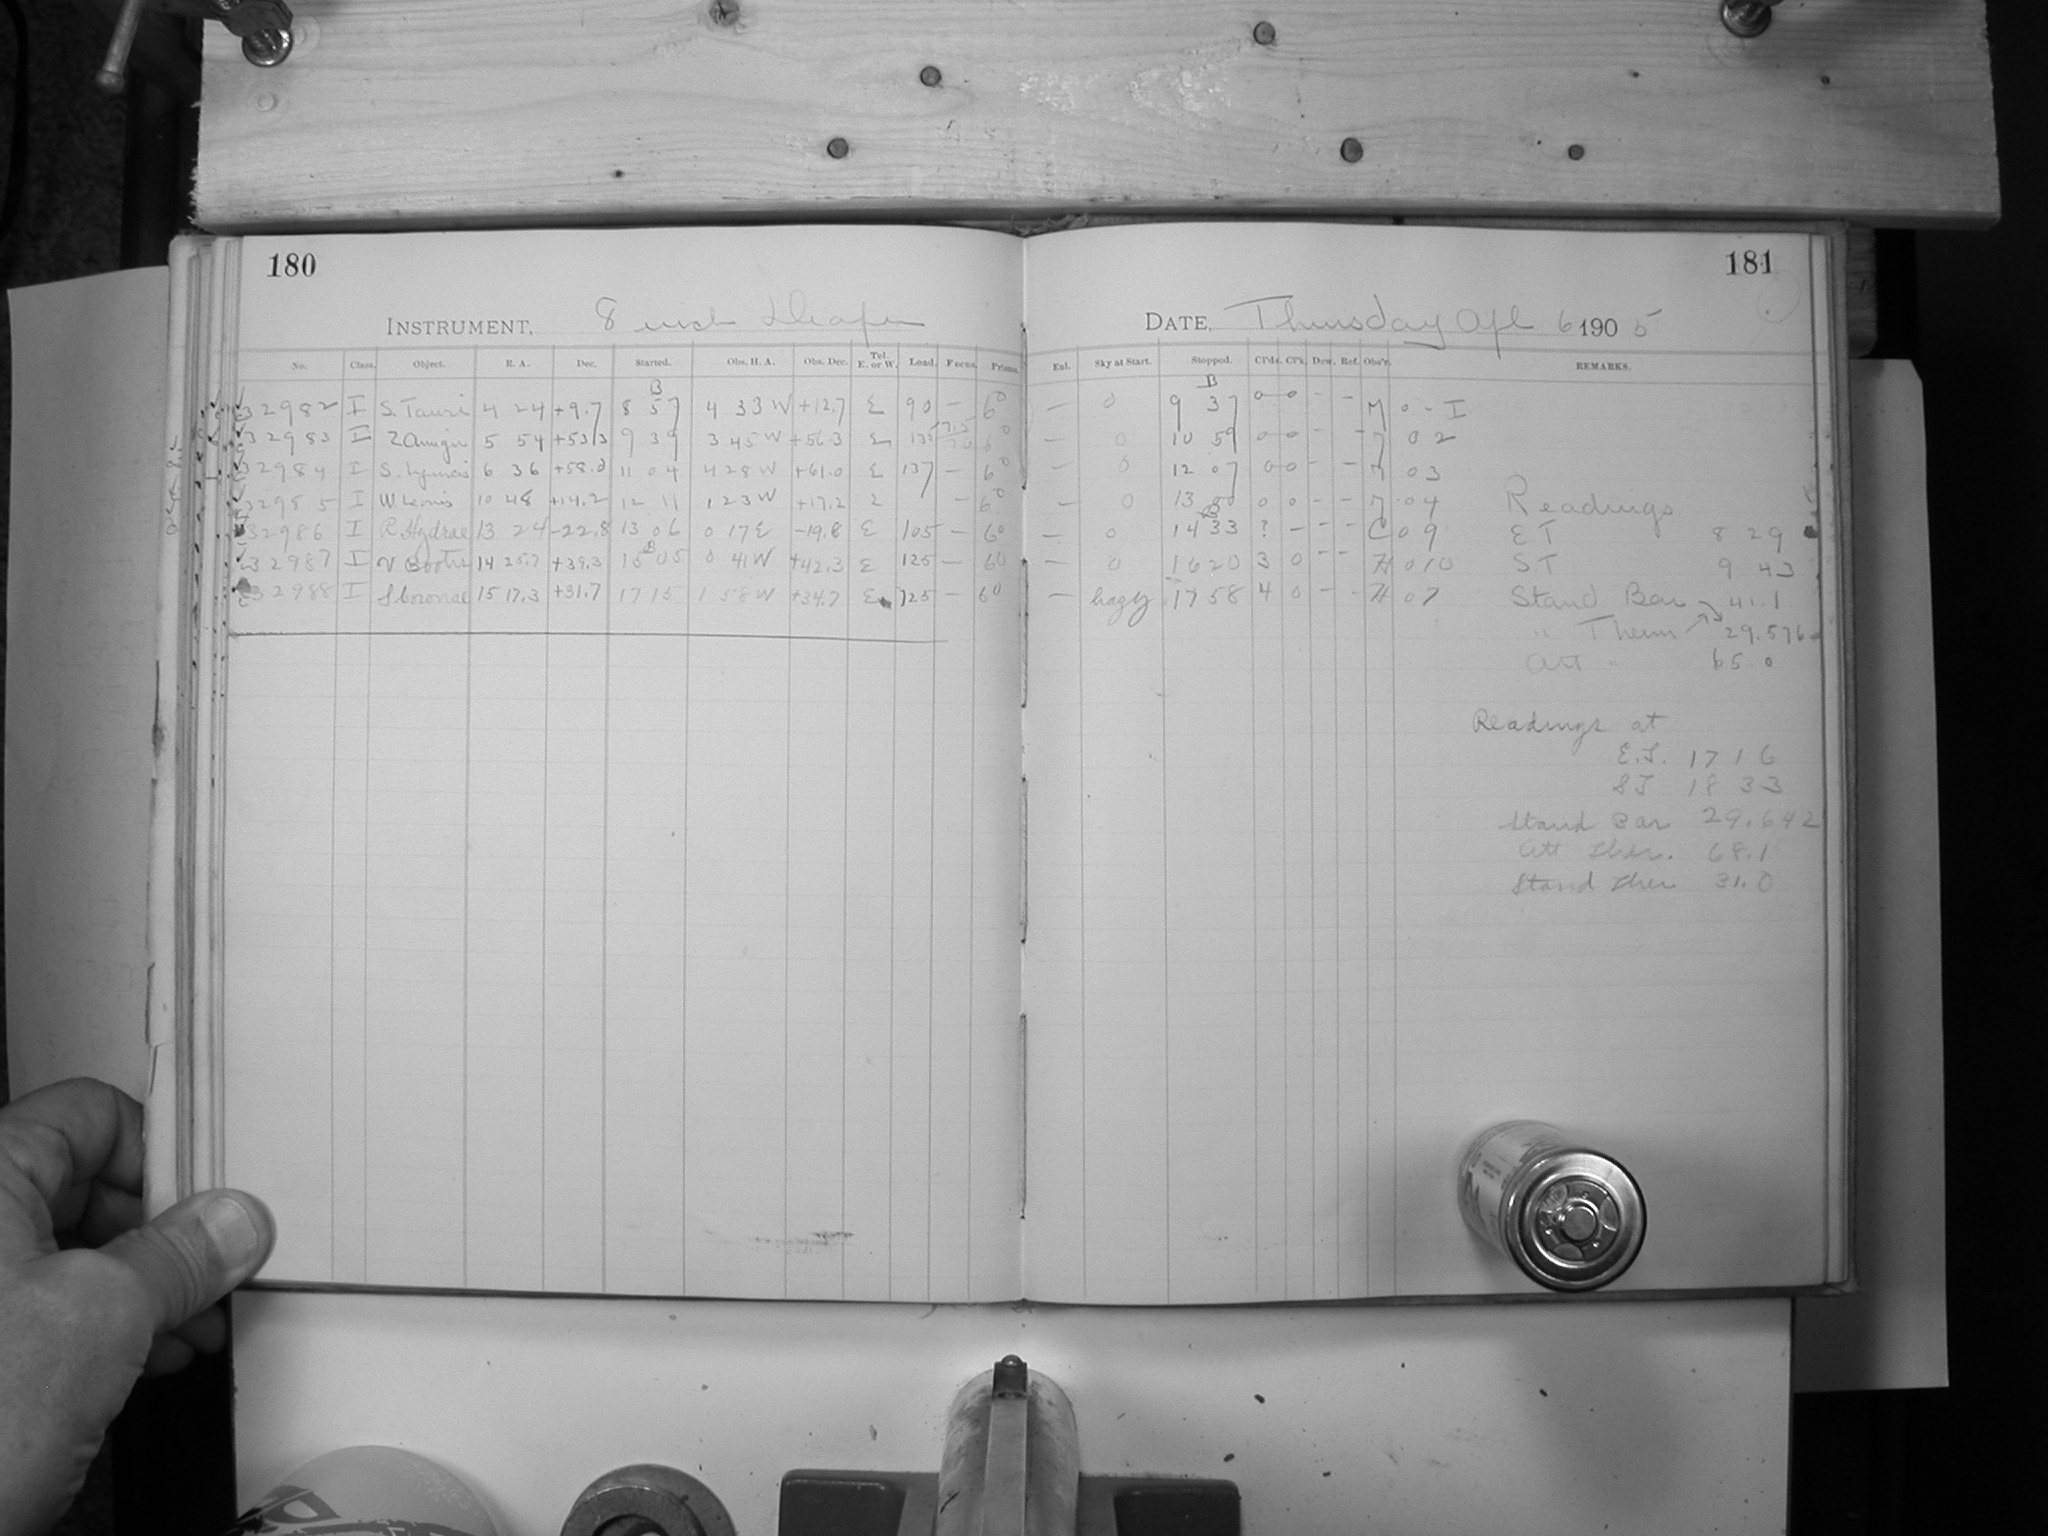 180
181
INSTRUMENT. 8 inch Draper
DATE. Thursday Apl 6 1905
No. Class. Object. R. A. Dec. Started. Obs. H. A. Obs. Dec. Tel. E. or W. Load. Focus. Prisms.
Enl. Sky at Start. Stopped. Cl'ds. Cl'k. Dew. Ref. Obs'r. REMARKS.
B
B
32982 I S. Tauri 4 24 +9.7 8 57 4 33 W +12.7 E 90 — 60 — 0 9 37 0 0 - - M 0 - I
32983 I Z Aurigae 5 54 +53.3 9 39 3 45 W +56.3 E 135 60 — 0 10 59 0 0 - - M 0 2
32984 I S. Lyncis 6 36 +58.0 11 04 4 28 W +61.0 E 137 — 60 — 0 12 07 0 0 - - M 0 3
32985 I W Leonis 10 48 +14.2 12 11 1 23 W +17.2 E — 60 — 0 13 00 0 0 - - M 0 4
B
32986 I R. Hydrae 13 24 -22.8 13 06 0 17 E -19.8 E 105 — 60 — 0 14 33 ? - - - C 0 9
B
32987 I V Bootis 14 25.7 +39.3 15 05 0 41 W +42.3 E 125 — 60 — 0 16 20 3 0 - - H 0 10
32988 I S Coronae 15 17.3 +31.7 17 15 1 58 W +34.7 E 125 — 60 — hazy 17 58 4 0 - - H 0 7
Readings
E T 8 29
S.T 9 43
Stand Bar 41.1
" Therm 29.576
Att " 65.0
Readings at
E.T. 17 16
S T 18 33
Stand Bar 29.642
Att Ther. 68.1
Stand Ther 31.0